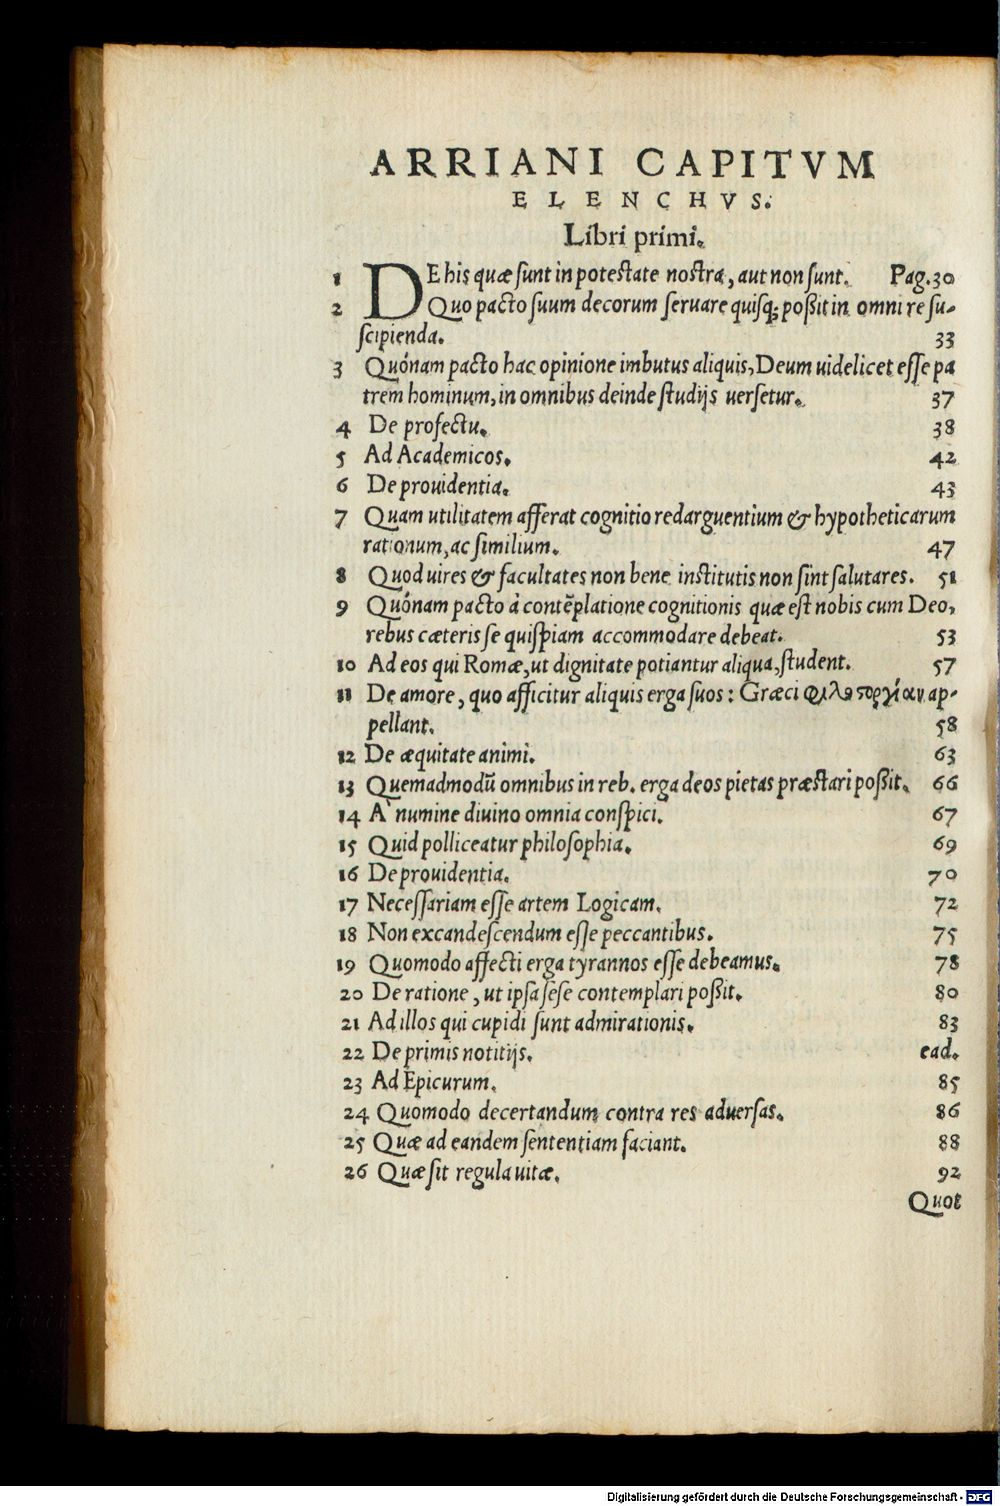 ARRIANI CAPITVM
ELENCHVS.
Libri primi.
1 DE his quæ sunt in potestate nostra, aut non sunt. Pag.30
2 Quo pacto suum decorum seruare quisq; poßit in omni re su-
scipienda. 33
3 Quónam pacto hac opinione imbutus aliquis, Deum uidelicet esse pa
trem hominum, in omnibus deinde studijs uersetur. 37
4 De profectu. 38
5 Ad Academicos. 42
6 De prouidentia. 43
7 Quam utilitatem afferat cognitio redarguentium & hypotheticarum
rationum, ac similium. 47
8 Quod uires & facultates non bene institutis non sint salutares. 51
9 Quónam pacto à contẽplatione cognitionis quæ est nobis cum Deo,
rebus cæteris se quispiam accommodare debeat. 53
10 Ad eos qui Romæ, ut dignitate potiantur aliqua, student. 57
11 De amore, quo afficitur aliquis erga suos: Græci φιλοστοργίαν ap-
pellant. 58
12 De æquitate animi. 63
13 Quemadmodũ omnibus in reb. erga deos pietas præstari poßit. 66
14 A` numine diuino omnia conspici. 67
15 Quid polliceatur philosophia. 69
16 De prouidentia. 70
17 Necessariam esse artem Logicam. 72
18 Non excandescendum esse peccantibus. 75
19 Quomodo affecti erga tyrannos esse debeamus. 78
20 De ratione, ut ipsa sese contemplari poßit. 80
21 Ad illos qui cupidi sunt admirationis. 83
22 De primis notitijs. ead.
23 Ad Epicurum. 85
24 Quomodo decertandum contra res aduersas. 86
25 Quæ ad eandem sententiam faciant. 88
26 Quæ sit regula uitæ. 92
Quot
Digitalisierung gefördert durch die Deutsche Forschungsgemeinschaft - DFG